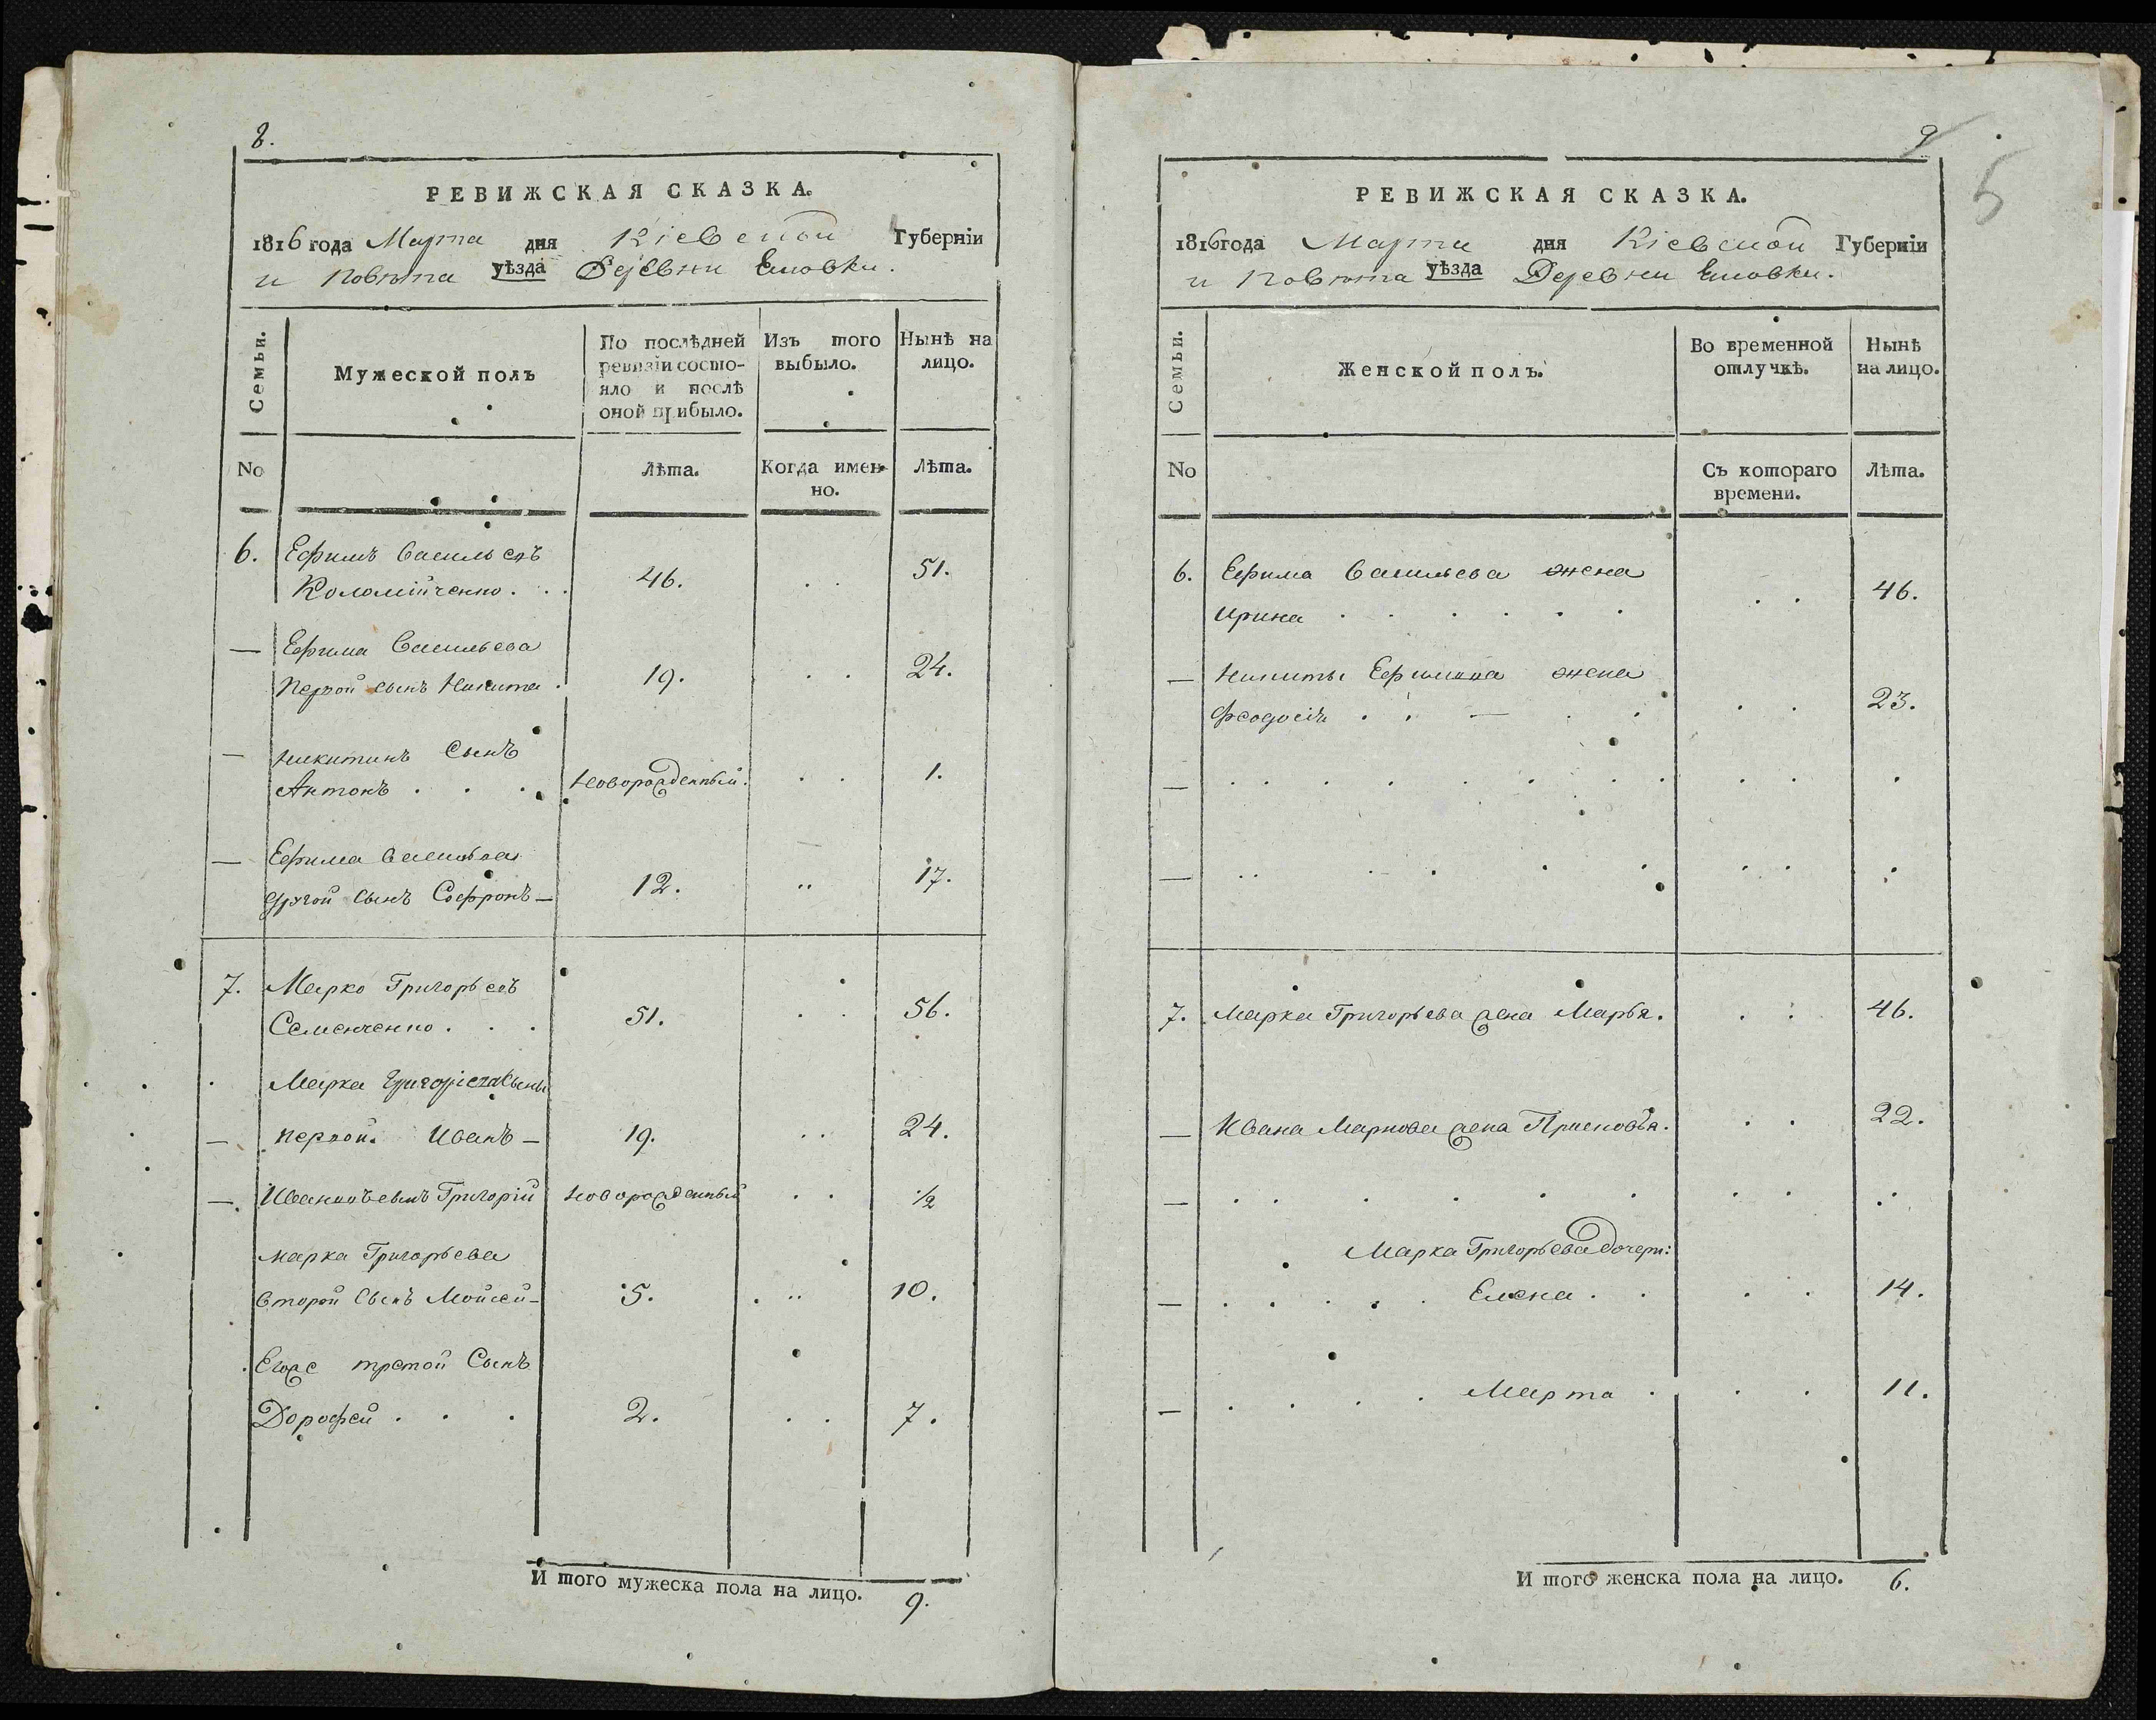 8.
РЕВИЖСКАЯ СКАЗКА.
1816 года Марта дня Кіевской Губерніи
и Повѣта уѣзда Деревни Еновки.
Семьи.
Мужеской полъ
По послѣдней
ревизіи состо-
яло и послѣ
оной прибыло.
Изъ того
выбыло.
Нынѣ на
лицо.
No
Лѣта.
Когда имен-
но.
Лѣта.
6. Ефимъ Васильевъ
Коломійченко . . . 46. . . 51.
— Ефима Васильева
первой сынъ Никита . 19. . . 24.
— Никитинъ Сынъ
Антонъ . . . Новорожденный. . . 1.
— Ефима Васильева
другой сынъ Софронъ — 12. .. 17.
7. Марко Григорьевъ
Семенченко . . . 51. . . 56.
Марка Григоріева сыны
— первой. Иванъ — 19. .. 24.
— Ивановъ сынъ Григорій Новорожденный . . 1/2
Марка Григорьева
второй сынъ Мойсей — 5. .. 10.
Егоже третой Сынъ
Дорофей . . . 2. . . 7.
И того мужеска пола на лицо. 9.
9
5
РЕВИЖСКАЯ СКАЗКА.
1816 года Марта дня Кіевской Губерніи
и Повѣта уѣзда Деревни Еновки.
Семьи.
Женской полъ.
Во временной
отлучкѣ.
Нынѣ
на лицо.
No
Съ котораго
времени.
Лѣта.
6. Ефима Васильева жена
Ирина . . . . . . . . 46.
— Никиты Ефимова жена
Феодосія . . — . . . . 23.
— . . . . . . . . . .
— . . . . . . . . .
7. Марка Григорьева жена Марья. . . 46.
— Ивана Маркова жена Присковья. . . 22.
— . . . . . . . . .
Марка Григорьева дочери:
— . . . . . Елена . . . . 14.
— . . . . Марта . . . 11.
И того женска пола на лицо. 6.